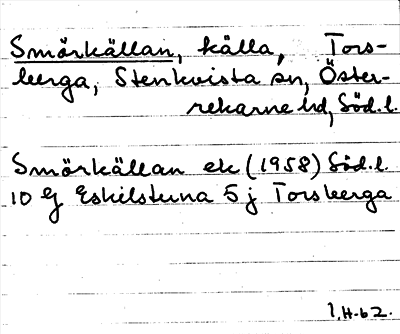 Smörkällan, källa, Tors-
berga, Stenkvista sn, Öster-
rekarne hd, Söd.l.
Smörkällan ek (1958) Söd.l.
10 G Eskilstuna 5 j Torsberga
1.H-62.